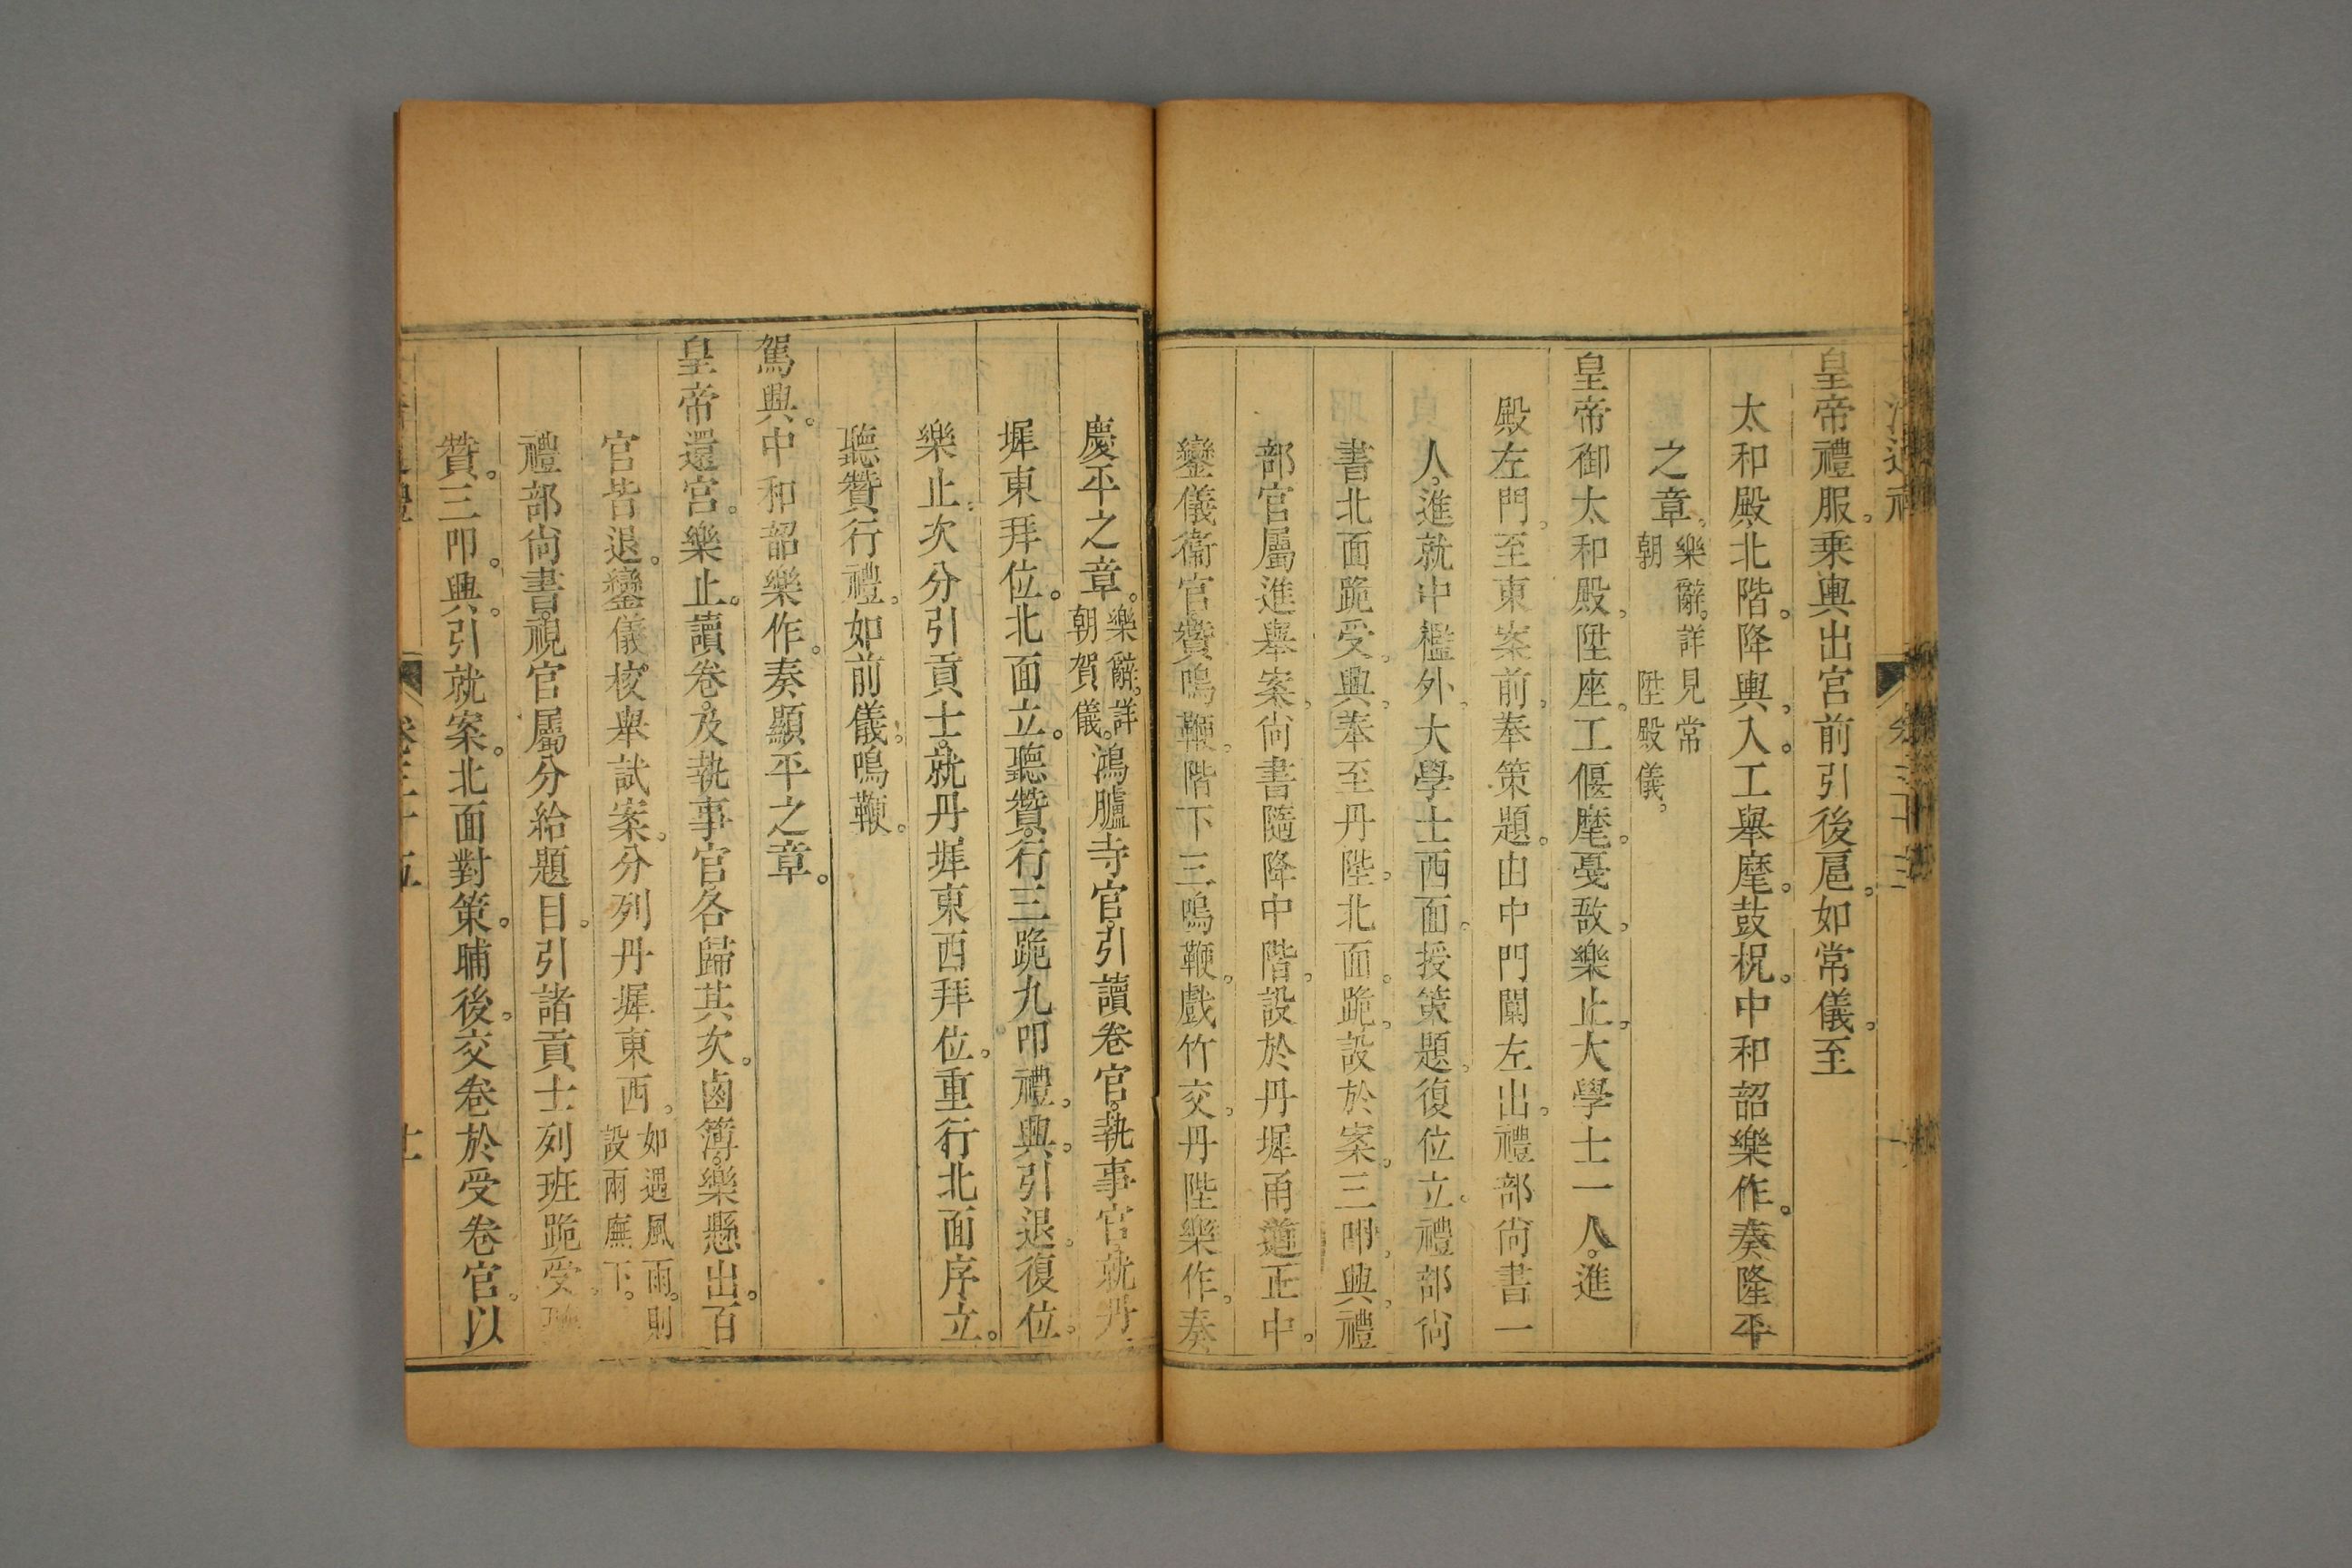 皇帝禮服。乗輿出宫前引後扈。如常儀。至
太和殿北階。降輿。入。工舉麾。鼓柷。中和韶樂作。奏隆平
之章。樂辭。詳見常朝陞殿儀。
皇帝御太和殿。陞座。工偃麾。戞敔。樂止。大學士一人。進
殿左門。至東案前。奉策題。由中門闑左出。禮部尙書一
人。進就中檻外。大學士西面。授策題。復位立。禮部尙
書北面跪受。興。奉至丹陛。北面。跪。設於案。三叩。興。禮
部官屬進舉案。尙書隨降中階。設於丹墀甬道正中。
鑾儀衞官。贊鳴鞭。階下三鳴鞭。戲竹交。丹陛樂作。奏
慶平之章。樂辭。詳朝賀儀。鴻臚寺官。引讀卷官。執事官。就丹
墀東拜位。北面立。聽贊。行三跪九叩禮。興。引退。復位。
樂止。次分引貢士。就丹墀東西拜位。重行北面序立。
聽贊行禮。如前儀。鳴鞭。
駕興。中和韶樂作。奏顯平之章。
皇帝還宮。樂止。讀卷。及執事官各歸其次。鹵簿。樂懸出。百
官皆退。鑾儀校舉試案。分列丹墀東西。如遇風雨。則設兩廡下。
禮部尙書。視官屬分給題目。引諸貢士列班跪受。
贊。三叩。興。引就案。北面對策。晡後。交卷於受卷官。以
卷三十五